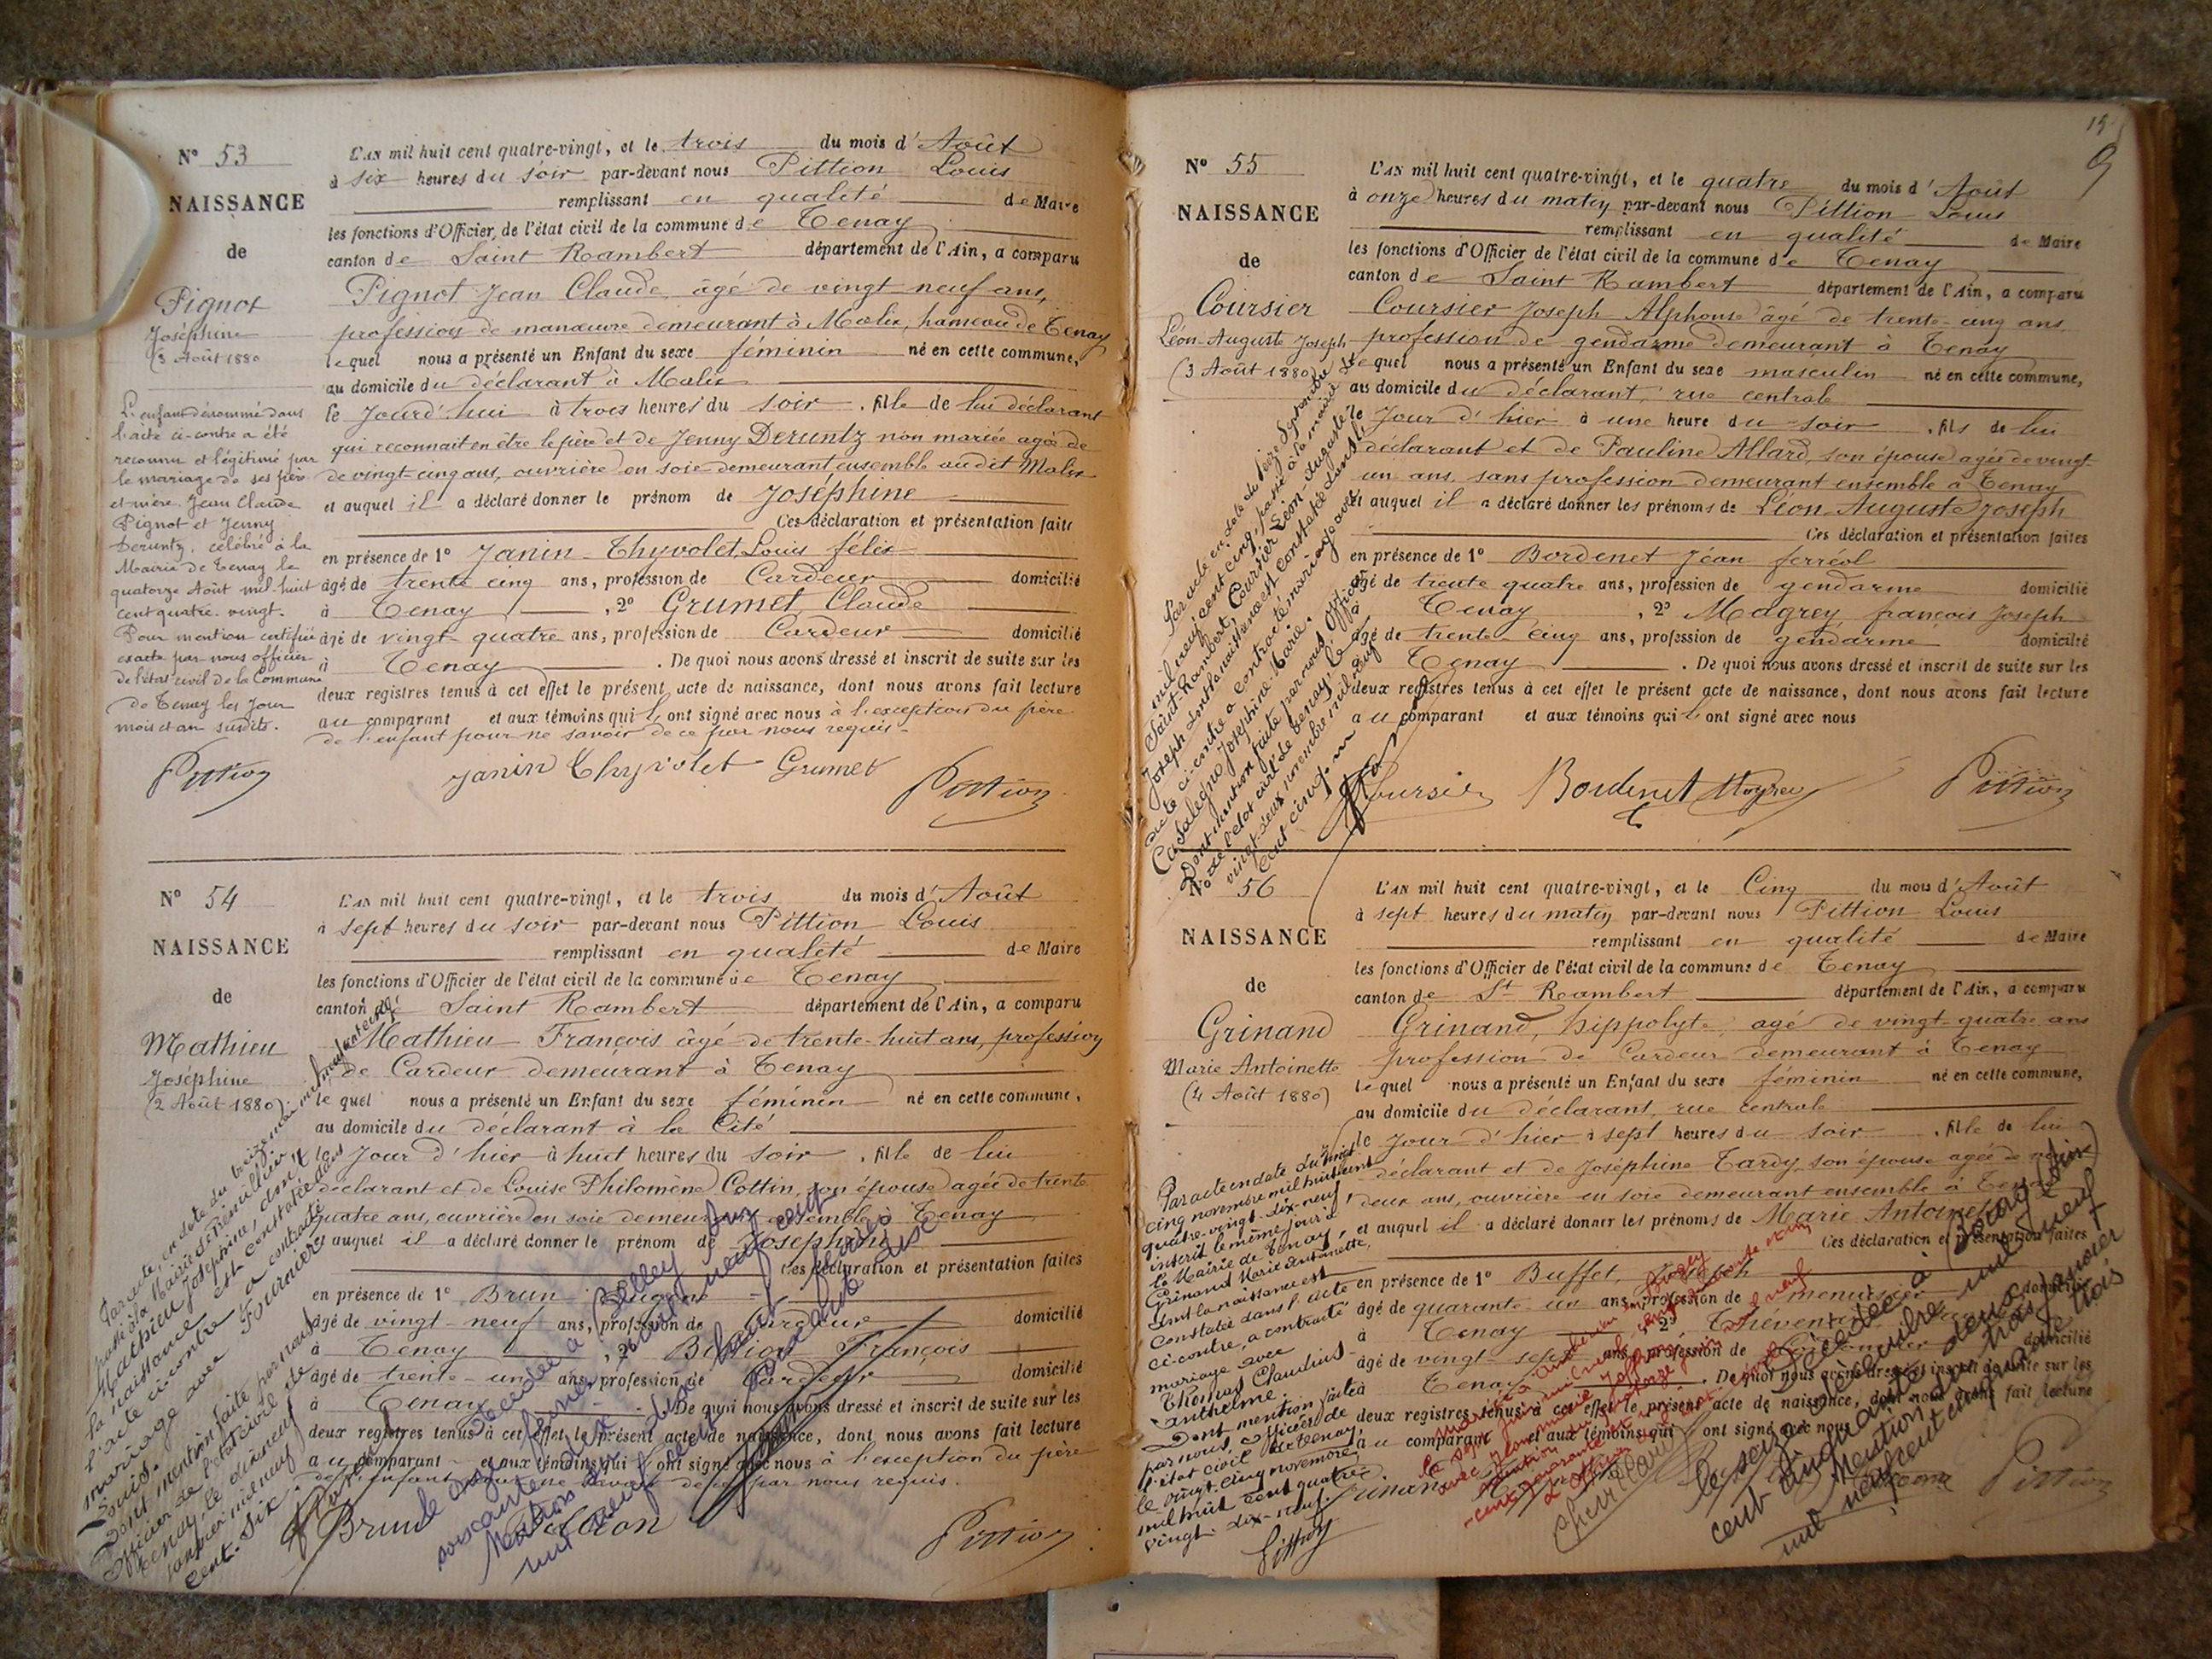 N° 53
NAISSANCE
de
Pignot
Joséphine
(3 Août 1880
L'enfant dénommé dans
l'acte ci-contre a été
reconnu et légitimé par
le mariage de ses père
et mère Jean Claude
Pignot et Jenny
Deruntz, célébré à la
Mairie de Tenay le
quatorze Août mil huit
cent quatre-vingt.
Pour mention certifiée
exacte par nous officier
de l'état civil de la Commune
de Tenay les jour
mois et an susdits.
Pittion
L'AN mil huit cent quatre-vingt, et le trois du mois d'Août
à six heures du soir par-devant nous Pittion Louis
remplissant en qualité de Maire
les fonctions d'Officier de l'état civil de la commune de Tenay
canton de Saint Rambert département de l'Ain, a comparu
Pignot Jean Claude, âgé de vingt neuf ans,
profession de manœuvre demeurant à Malix, hameau de Tenay
lequel nous a présenté un Enfant du sexe féminin né en cette commune,
au domicile du déclarant à Malix
le Jourd'hui à trois heures du soir . fille de lui déclarant
qui reconnait en être le père et de Jenny Deruntz non mariée agée de
de vingt-cinq ans, ouvrière en soie demeurant ensemble au dit Malix
et auquel il a déclaré donner le prénom de Joséphine
Ces déclaration et présentation faites
en présence de 1° Janin-Thyvolet Louis félix
âgé de trente cinq ans, profession de Cardeur domicilié
à Tenay , 2° Grumet, Claude
âgé de vingt-quatre ans, profession de Cardeur domicilié
à Tenay . De quoi nous avons dressé et inscrit de suite sur les
deux registres tenus à cet effet le présent acte de naissance, dont nous avons fait lecture
au comparant et aux témoins qui l'ont signé avec nous à l'exception du père
de l'enfant pour ne savoir de ce par nous requis.
Janin Thyvolet Grumet Pittion
N° 54
NAISSANCE
de
Mathieu
Joséphine
(2 Août 1880)
Mathieu Joséphine, dont
la naissance est constatée dans
l'acte ci-contre a contracté
mariage avec Fournier
Louis.
Dont mention faite par nous
Officier de l'état civil de
Tenay, le dix neuf
janvier mil neuf
cent-six.
L'AN mil huit cent quatre-vingt, et le trois du mois d'Août
à sept heures du soir par-devant nous Pittion Louis
remplissant en qualité de Maire
les fonctions d'Officier de l'état civil de la commune de Tenay
canton de Saint Rambert département de l'Ain, a comparu
Mathieu François âgé de trente-huit ans, profession
de Cardeur demeurant à Tenay
lequel nous a présenté un Enfant du sexe féminin né en cette commune,
au domicile du déclarant à la Cité
le Jour d'hier à huit heures du soir . fille de lui
déclarant et de Louise Philomène Cottin, son épouse agée de trente
quatre ans, ouvrière en soie demeurant ensemble à Tenay
et auquel il a déclaré donner le prénom de Joséphine
Ces déclaration et présentation faites
en présence de 1° Brun Eugène
âgé de vingt-neuf ans, profession de Cardeur domicilié
à Tenay , 2° François
âgé de trente-un ans, profession de Cardeur domicilié
à Tenay . De quoi nous avons dressé et inscrit de suite sur les
deux registres tenus à cet effet le présent acte de naissance, dont nous avons fait lecture
au comparant et aux témoins qui l'ont signé avec nous à l'exception du père
de l'enfant pour ne savoir de ce par nous requis.
Décédée à Belley Ain
Brun Pittion
15
N° 55
NAISSANCE
de
Coursier
Léon-Auguste Joseph
(3 Août 1880)
Par acte en date du seize Septembre
mil neuf cent cinq, passé à la mairie de
Saint-Rambert, Coursier Léon Auguste
Joseph dont la naissance est constatée dans l'
acte ci-contre a contracté mariage avec
Casalegno Josephine-Marie.
Dont mention faite par nous Officier
de l'état civil de Tenay, le
vingt-deux novembre mil neuf
cent cinq.
L'AN mil huit cent quatre-vingt, et le quatre du mois d'Août
à onze heures du matin par-devant nous Pittion Louis
remplissant en qualité de Maire
les fonctions d'Officier de l'état civil de la commune de Tenay
canton de Saint Rambert département de l'Ain, a comparu
Coursier Joseph Alphonse âgé de trente-cinq ans
profession de gendarme demeurant à Tenay
lequel nous a présenté un Enfant du sexe masculin né en cette commune,
au domicile du déclarant, rue centrale
le Jour d'hier à une heure du soir . fils de lui
déclarant et de Pauline Allard, son épouse agée de vingt
un ans, sans profession demeurant ensemble à Tenay
et auquel il a déclaré donner les prénoms de Léon-Auguste Joseph
Ces déclaration et présentation faites
en présence de 1° Bordenet Jéan ferréol
âgé de trente quatre ans, profession de gendarme domicilié
à Tenay , 2° Magrey françois Joseph
âgé de trente cinq ans, profession de gendarme domicilié
à Tenay . De quoi nous avons dressé et inscrit de suite sur les
deux registres tenus à cet effet le présent acte de naissance, dont nous avons fait lecture
au comparant et aux témoins qui l'ont signé avec nous
Coursier Bordenet Magrey Pittion
N° 56
NAISSANCE
de
Grinand
Marie Antoinette
(4 Août 1880)
Par acte en date du vingt
cinq novembre mil huit cent
quatre-vingt-dix-neuf,
inscrit le même jour à
la Mairie de Tenay,
Grinand Marie Antoinette,
dont la naissance est
constatée dans l'acte
ci-contre, a contracté
mariage avec
Thomas Claudius-
Anthelme.
Dont mention faite
par nous, Officier de
l'état civil de Tenay,
le vingt-cinq novembre,
mil huit cent quatre
vingt-dix-neuf.
Pittion
L'AN mil huit cent quatre-vingt, et le Cinq du mois d'Août
à sept heures du matin par-devant nous Pittion Louis
remplissant en qualité de Maire
les fonctions d'Officier de l'état civil de la commune de Tenay
canton de St Rambert département de l'Ain, a comparu
Grinand, hippolyte, agé de vingt-quatre ans
profession de Cardeur demeurant à Tenay
lequel nous a présenté un Enfant du sexe féminin né en cette commune,
au domicile du déclarant, rue centrale
le Jour d'hier à sept heures du soir . fille de lui
déclarant et de Joséphine Tardy, son épouse agée de vingt
deux ans, ouvrière en soie demeurant ensemble à Tenay
et auquel il a déclaré donner les prénoms de Marie Antoinette
Ces déclaration et présentation faites
en présence de 1° Buffet, Joseph
âgé de quarante-un ans, profession de menuisier domicilié
à Tenay , 2° Thévenet
âgé de vingt-sept ans, profession de domicilié
Tenay . De quoi nous avons dressé et inscrit de suite sur les
deux registres tenus à cet effet le présent acte de naissance, dont nous avons fait lecture
au comparant et aux témoins qui l'ont signé avec nous
Décédée à
le seize décembre mil neuf
cent cinquante deux
Mention du trois janvier
mil neuf cent cinquante trois
Grinand Pittion